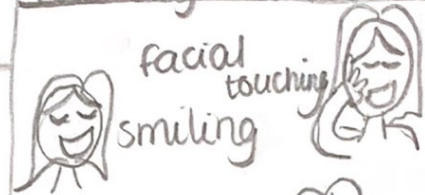 facial
touching
smiling